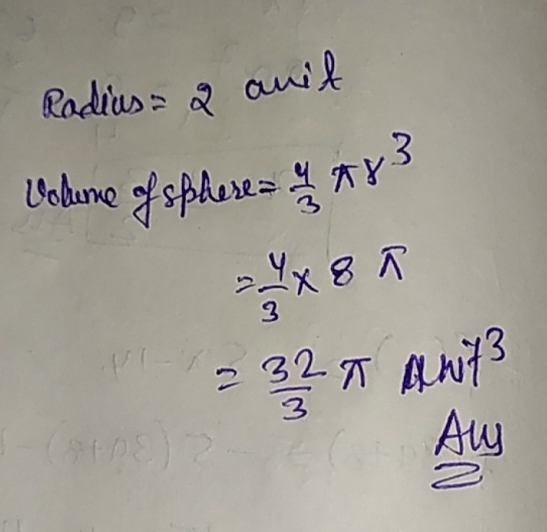 Radius = 2 unit
Volume of sphere = 4/3 πr³
= 4/3 × 8 π
= 32/3 π unit³
Ans